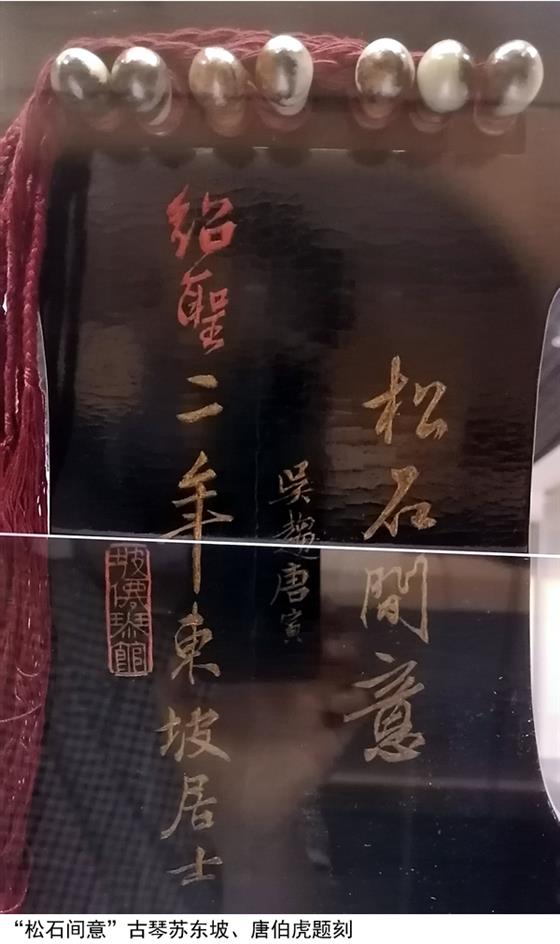 松石間意
吳趨唐寅
紹聖二年東坡居士
坡僊琴館
“松石间意”古琴苏东坡、唐伯虎题刻